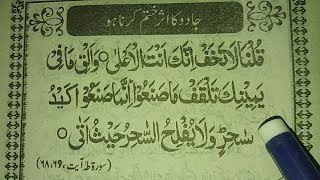 جادو کا اثر ختم کرنا ہو
قُلْنَا لَا تَخَفْ اِنَّكَ اَنْتَ الْاَعْلٰى ۝ وَاَلْقِ مَا فِيْ
يَمِيْنِكَ تَلْقَفْ مَا صَنَعُوْا اِنَّمَا صَنَعُوْا كَيْدُ
سٰحِرٍ وَلَا يُفْلِحُ السّٰحِرُ حَيْثُ اَتٰى ۝
(سورۃ طہٰ آیت، ۶۹، ۶۸)